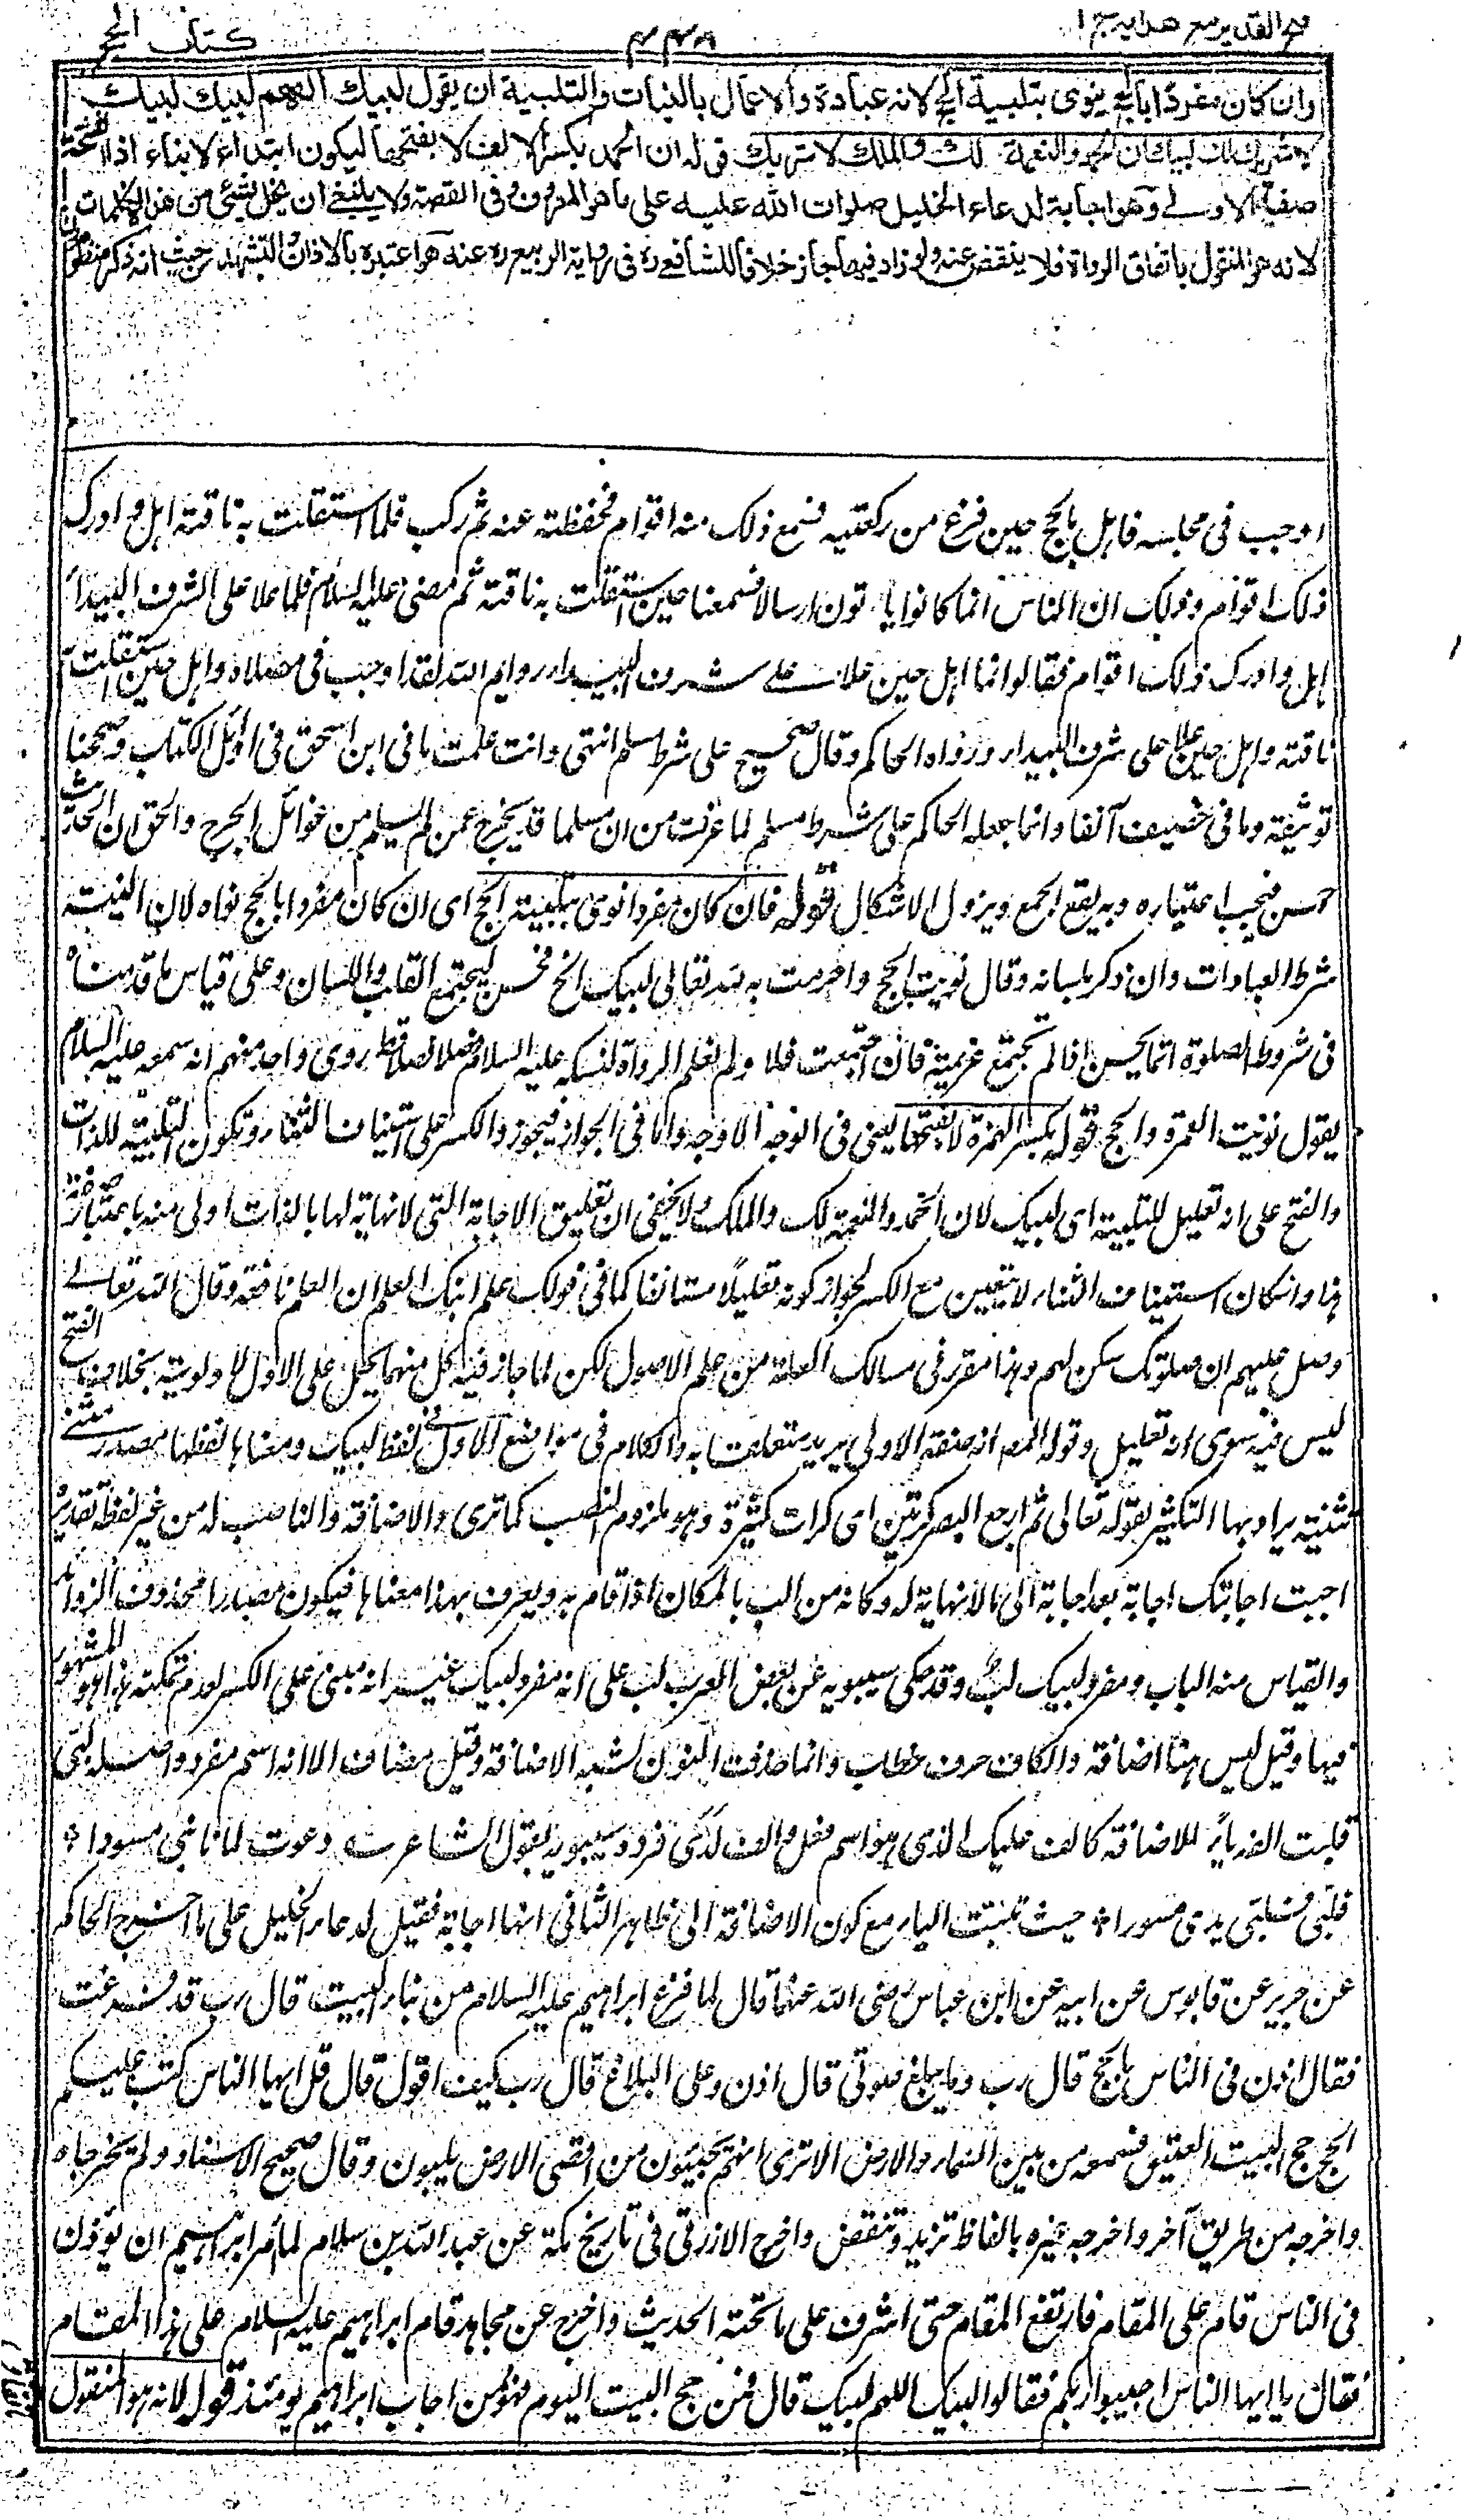 فتح القدير مع هدايه ج ١
كتاب الحج
وان كان مفردا بالحج ينوى بتلبيته الحج لانه عبادة والاعمال بالنيات والتلبية ان يقول لبيك اللهم لبيك لبيك
لا شريك لك لبيك ان الحمد والنعمة لك والملك لا شريك لك قوله ان الحمد بكسر الالف لا بفتحها ليكون ابتداء لا بناء اذ الفتحة
صفة الاولى وهو اجابة لدعاء الخليل صلوات الله عليه على ما هو المعروف فى القصة ولا ينبغى ان يخل بشئ من هذه الكلمات
لانه هو المنقول باتفاق الرواة فلا ينقص عنه ولو زاد فيها جاز خلافا للشافعى ره فى رواية الربيع ره عنه هو اعتبره بالاذان والتشهد من حيث انه ذكر منظوم
اوجب فى مجلسه فاهل بالحج حين فرغ من ركعتيه فسمع ذلك منه اقوام فحفظته عنه ثم ركب فلما استقلت به ناقته اهل وادرك
ذلك اقوام وذلك ان الناس انما كانوا ياتون ارسالا فسمعنا حين استقلت به ناقته ثم مضى عليه السلام فلما علا على شرف البيداء
اهل وادرك ذلك اقوام فقالوا انما اهل حين علا على شرف البيداء وايم الله لقد اوجب فى مصلاه واهل حين استقلت به
ناقته واهل حين علا على شرف البيداء ورواه الحاكم وقال صحيح على شرط مسلم انتهى وانت علمت ما فى ابن اسحق فى اوائل الكتاب وصححنا
توثيقه وما فى خصيف آنفا وانما جعله الحاكم على شرط مسلم لما عرفت من ان مسلما قد يخرج عمن لم يسلم من غوائل الجرح والحق ان الحديث
حسن فيجب اعتباره وبه يقع الجمع ويزول الاشكال قوله فان كان مفردا نوى بتلبيته الحج اى ان كان مفردا بالحج نواه لان النية
شرط العبادات وان ذكر بلسانه وقال نويت الحج واحرمت به لله تعالى لبيك الخ فحسن ليجتمع القلب واللسان وعلى قياس ما قدمناه
فى شروط الصلوة انما يحسن اذا لم تجتمع عزيمته فان اجتمعت فلا ولم نعلم الرواة لنسكه عليه السلام فصلا فصلا قط روى واحد منهم انه سمعه عليه السلام
يقول نويت العمرة والحج قوله بكسر الهمزة لا بفتحها يعنى فى الوجه الاوجه واما فى الجواز فيجوز والكسر على استيناف الثناء وتكون التلبية للذات
والفتح على انه تعليل للتلبية اى لبيك لان الحمد والنعمة لك والملك ولا يخفى ان تعليق الاجابة التى لا نهاية لها بالذات اولى منه باعتبار صفة
هذا وان كان استيناف الثناء لا يتعين مع الكسر لجواز كونه تعليلا مستانفا كما فى قولك علم ابنك العلم ان العلم نافعه وقال الله تعالى
وصل عليهم ان صلوتك سكن لهم وهذا مقرر فى مسالك العلة من علم الاصول لكن لما جاز فيه كل منهما يحمل على الاول لاولويته بخلاف الفتح
ليس فيه سوى انه تعليل وقول المصـ انه صفة الاولى يريد متعلقا به والكلام فى مواضع الاول فى لفظ لبيك ومعناها لفظها مصدر مثنى
تثنية يراد بها التكثير لقوله تعالى ثم ارجع البصر كرتين اى كرات كثيرة وهو ملزوم النصب كما ترى والاضافة والناصب له من غير لفظه تقديره
اجبت اجابتك اجابة بعد اجابة الى ما لا نهاية له وكانه من الب بالمكان اذا اقام به ويعرف بهذا معناها فيكون مصدرا محذوف الزوائد
والقياس منه الباب ومفرد لبيك لب وقد حكى سيبويه عن بعض العرب لب على انه مفرد لبيك غير انه مبنى على الكسر لعدم تمكنه هذا هو المشهور
فيها وقيل ليس هنا اضافة والكاف حرف خطاب وانما حذفت النون لشبه الاضافة وقيل مضاف الا انه اسم مفرد واصله لبى
قلبت الفه ياء للاضافة كالف عليك الذى هو اسم فعل والف لدى فرده سيبويه بقول الشاعر دعوت لما نابنى مسورا *
فلبى فلبى يدى مسور * حيث ثبتت الياء مع كون الاضافة الى ظاهر الثانى انها اجابة فقيل لدعاء الخليل على ما اخرج الحاكم
عن جرير عن قابوس عن ابيه عن ابن عباس رضى الله عنهما قال لما فرغ ابراهيم عليه السلام من بناء البيت قال رب قد فرغت
فقال اذن فى الناس بالحج قال رب وما يبلغ صوتى قال اذن وعلى البلاغ قال رب كيف اقول قال قل ايها الناس كتب عليكم
الحج حج البيت العتيق فسمعه من بين السماء والارض الا ترى انهم يجيئون من اقصى الارض يلبون وقال صحيح الاسناد ولم يخرجاه
واخرجه من طريق آخر واخرجه غيره بالفاظ تزيد وتنقص واخرج الازرقى فى تاريخ مكة عن عبد الله بن سلام لما امر ابراهيم ان يؤذن
فى الناس قام على المقام فارتفع المقام حتى اشرف على ما تحته الحديث واخرج عن مجاهد قام ابراهيم عليه السلام على هذا المقام
فقال يا ايها الناس اجيبوا ربكم فقالوا لبيك اللهم لبيك قال فمن حج البيت اليوم فهو ممن اجاب ابراهيم يومئذ قوله لانه هو المنقول